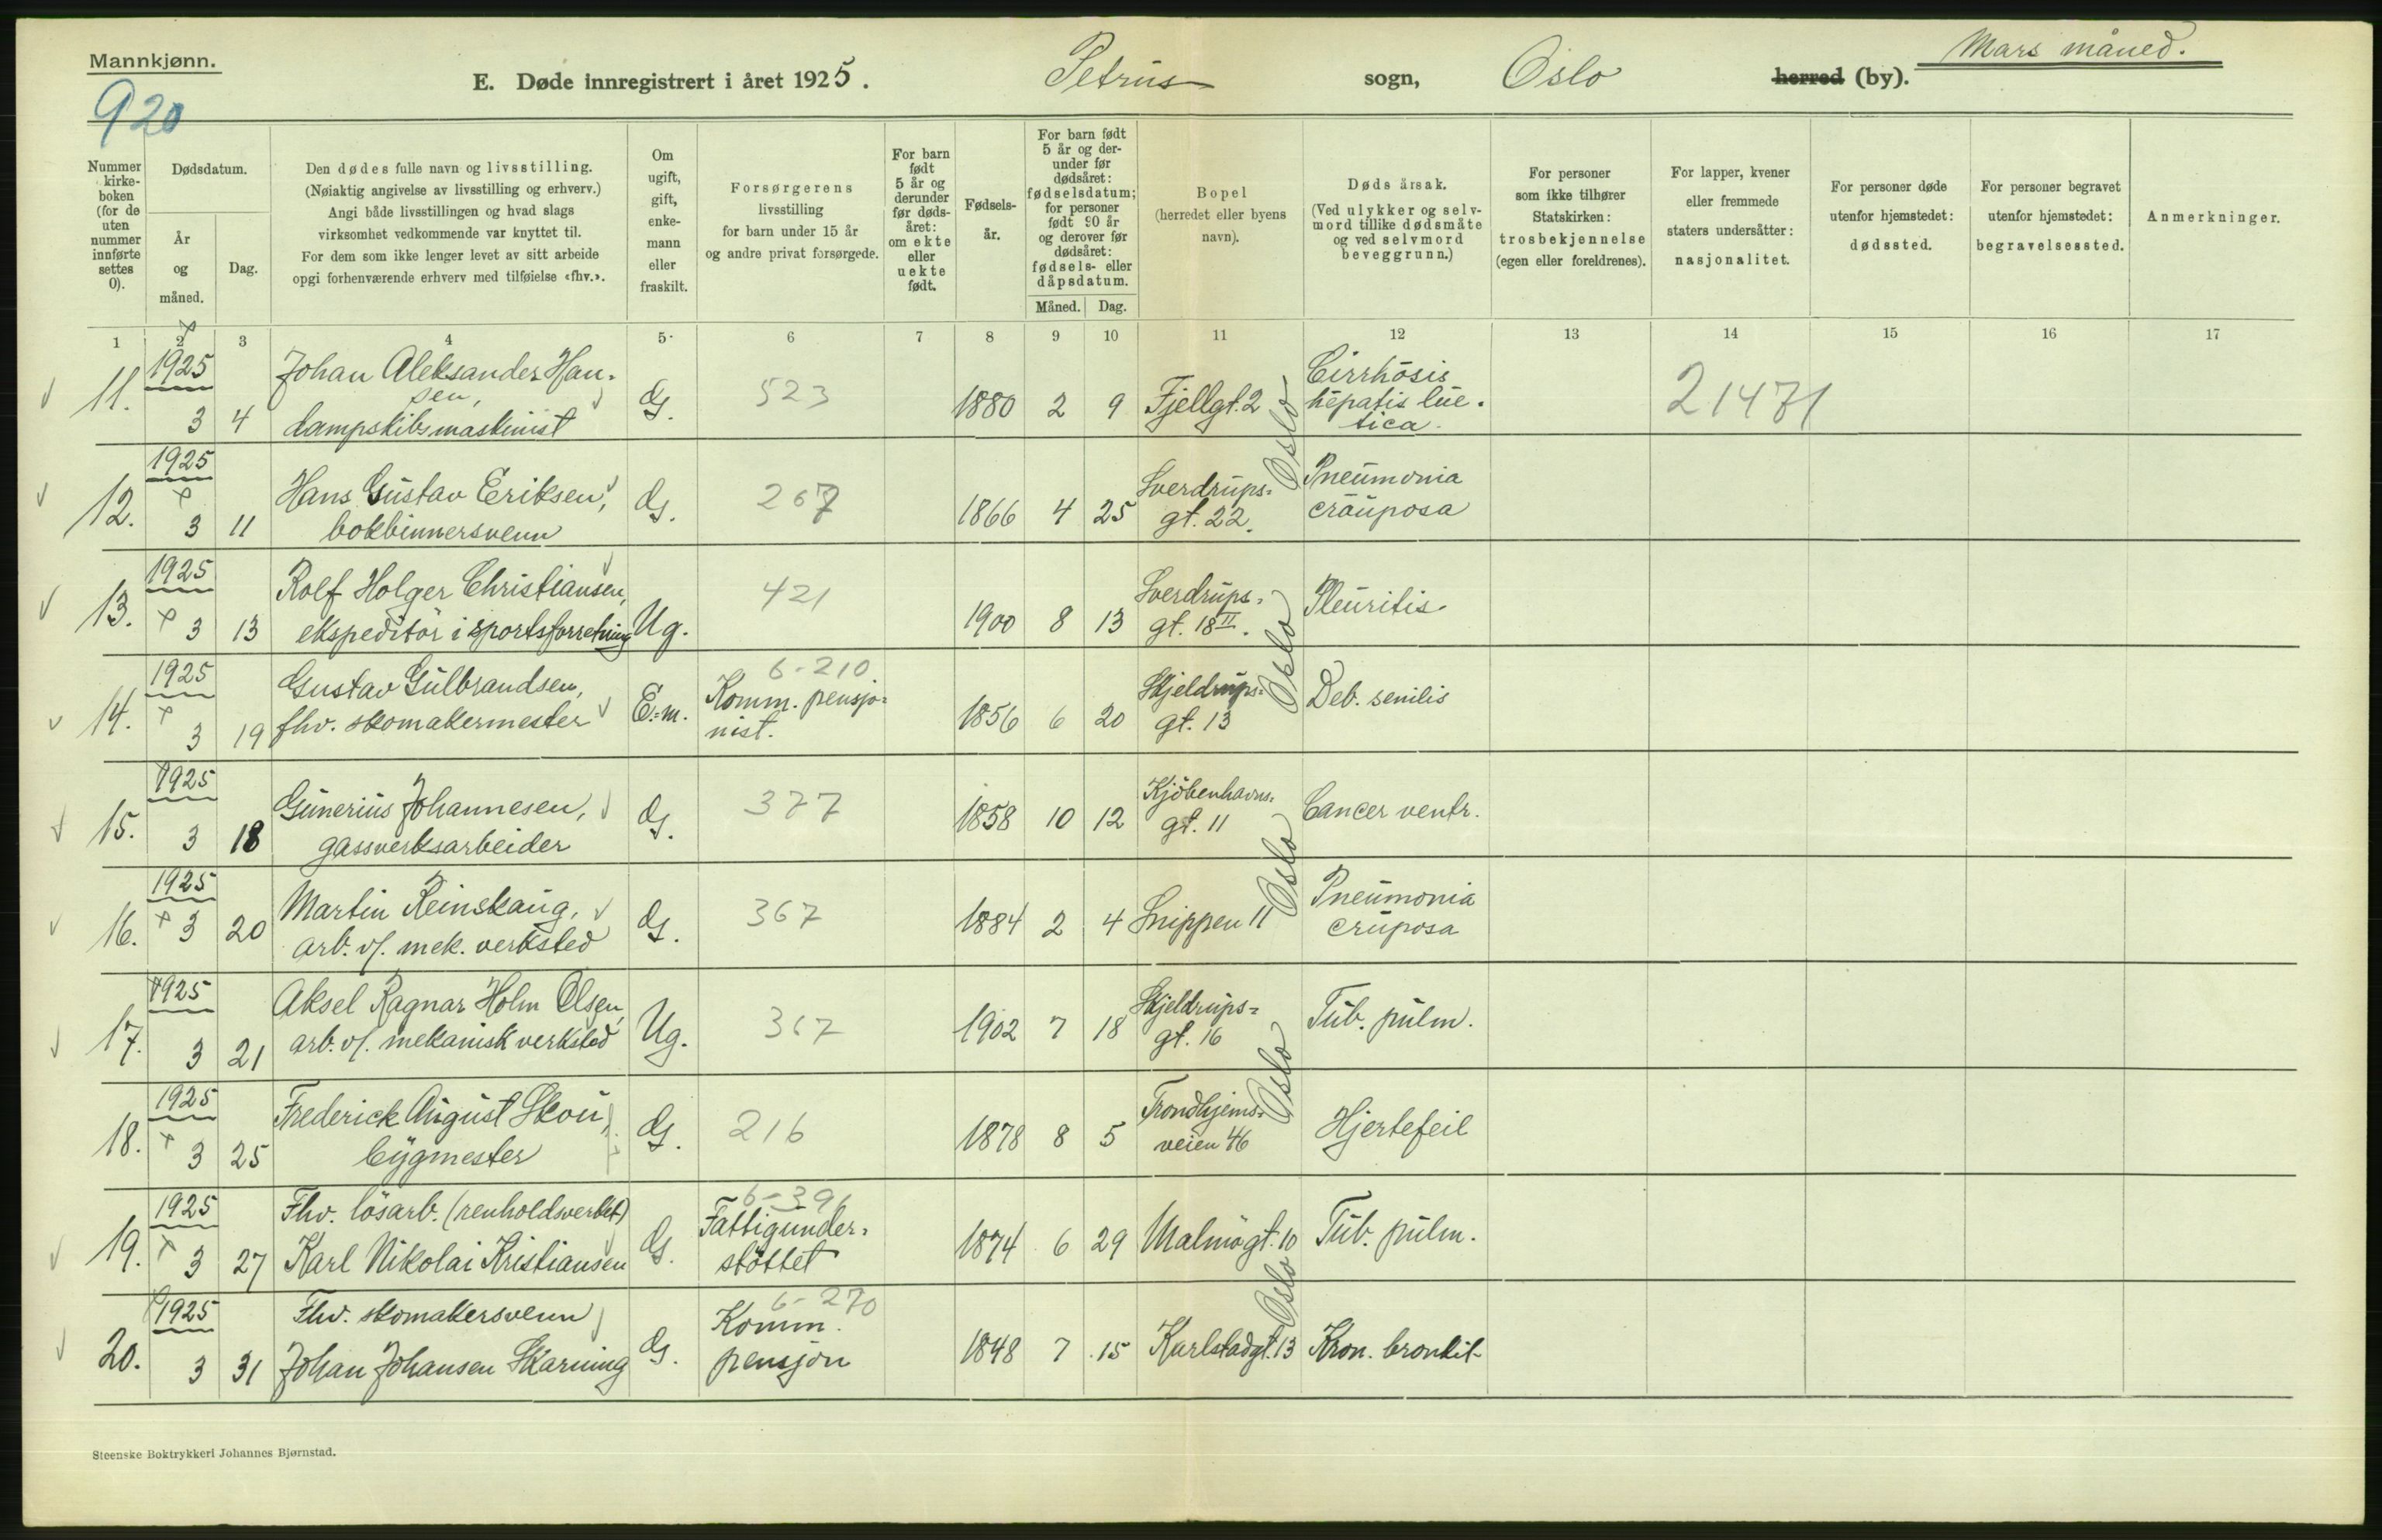 Mannkjønn.
920
E. Døde innregistrert i året 1925.
Petrus sogn, Oslo herred (by).
Mars måned.
Nummer i kirkeboken (for de uten nummer innførte settes 0).
Dødsdatum.
År og måned.
Dag.
Den dødes fulle navn og livsstilling.
(Nøiaktig angivelse av livsstilling og erhverv.)
Angi både livsstillingen og hvad slags
virksomhet vedkommende var knyttet til.
For dem som ikke lenger levet av sitt arbeide
opgi forhenværende erhverv med tilføielse «fhv.».
Om ugift, gift, enkemann eller fraskilt.
Forsørgerens
livsstilling
for barn under 15 år
og andre privat forsørgede.
For barn født 5 år og derunder før dødsåret: om ekte eller uekte født.
Fødselsår.
For barn født 5 år og derunder før dødsåret: fødselsdatum; for personer født 90 år og derover før dødsåret: fødsels- eller dåpsdatum.
Måned. Dag.
Bopel
(herredet eller byens
navn).
Døds årsak.
(Ved ulykker og selvmord tillike dødsmåte og ved selvmord beveggrunn.)
For personer
som ikke tilhører
Statskirken:
trosbekjennelse
(egen eller foreldrenes).
For lapper, kvener
eller fremmede
staters undersåtter:
nasjonalitet.
For personer døde
utenfor hjemstedet:
dødssted.
For personer begravet
utenfor hjemstedet:
begravelsessted.
Anmerkninger.
1 2 3 4 5 6 7 8 9 10 11 12 13 14 15 16 17
11. 1925 3 4 Johan Aleksander Hansen, dampskibsmaskinist G. 523 1880 2 9 Fjellgt. 2 Oslo Cirrhosis hepatis luetica. 21471
12. 1925 3 11 Hans Gustav Eriksen, bokbinnersvenn G. 267 1866 4 25 Sverdrupsgt. 22. Pneumonia crauposa
13. 1925 3 13 Rolf Holger Christiansen, ekspeditør i sportsforretning Ug. 421 1900 8 13 Sverdrupsgt. 18 II. Oslo Pleuritis
14. 1925 3 19 Gustav Gulbrandsen, fhv. skomakermester E.=m. 6-210 Komm. pensjonist. 1856 6 20 Skjeldrupsgt. 13 Deb. senilis
15. 1925 3 18 Gunerius Johannesen, gassverksarbeider G. 377 1858 10 12 Kjöbenhavnsgt. 11 Oslo Cancer ventr.
16. 1925 3 20 Martin Reinskaug, arb. v/. mek. verksted G. 367 1884 2 4 Snippen 11 Pneumonia cruposa
17. 1925 3 21 Aksel Ragnar Holm Olsen, arb. v/. mekanisk verksted Ug. 367 1902 7 18 Skjeldrupsgt. 16 Oslo Tub. pulm.
18. 1925 3 25 Frederick August Skou, bygmester G. 216 1878 8 5 Trondhjemsveien 46 Hjertefeil
19. 1925 3 27 Fhv. løsarb. (renholdsverket) Karl Nikolai Kristiansen G. 6-396 Fattigunderstøttet 1874 6 29 Malmøgt. 10 Oslo Tub. pulm.
20. 1925 3 31 Fhv. skomakersvenn Johan Johansen Skarning G. 6-270 Komm. pensjon 1848 7 15 Karlstadgt. 13 Kron. bronkit
Steenske Boktrykkeri Johannes Bjørnstad.